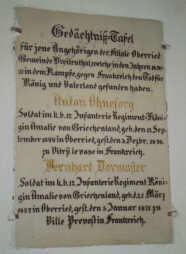 Gedächtniß-Tafel
für jene Angehörigen der Filiale Oberried
Gemeinde welche in den Jahren
in dem Kampfe gegen Frankreich den Tod für
König und Vaterland gefunden haben.
Anton Ohnesorg
Soldat im k. b. 12 Infanterie Regiment Köni-
gin Amalie von Griechenland, geb. den 15. Sep-
tember in Oberried, gest. den 2. Dezbr.
zu in Frankreich.
Bernhart Dormayer
Soldat im k. b. 12 Infanterie Regiment Köni-
gin Amalie von Griechenland, geb. d. März
in Oberried, gest. den Januar 1871 zu
Ville Prevost in Frankreich.